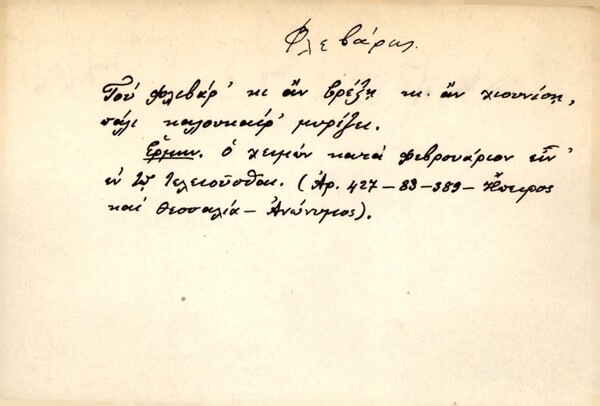 Φλεβάρης.
Τοῦ Φλεβάρ' κι ἂν βρέξῃ κι ἂν χιουνίσῃ,
πάλι καλουκαίρ' μυρίζει.
Ἑρμην. ὁ χειμὼν κατὰ Φεβρουάριον εἶν'
ἐν τῷ τελειοῦσθαι. (Ἀρ. 427-83-389-Ἤπειρος
καὶ Θεσσαλία-Ἀνώνυμος).